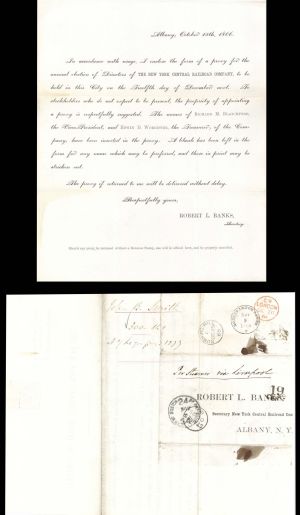 Albany, October 18th, 1866.
In accordance with usage, I enclose the form of a proxy for the
annual election of Directors of THE NEW YORK CENTRAL RAILROAD COMPANY, to be
held in this City on the Twelfth day of December next. To
stockholders who do not expect to be present, the propriety of appointing
a proxy is respectfully suggested. The names of RICHARD M. BLATCHFORD,
the Vice President, and EDWIN D. WORCESTER, the Treasurer, of the Com-
pany, have been inserted in the proxy. A blank has been left in the
form for any name which may be preferred, and those in print may be
stricken out.
The proxy if returned to me will be delivered without delay.
Respectfully yours,
ROBERT L. BANKS,
Secretary.
John B. Smith
LONDON
Per Steamer via Liverpool
ROBERT L. BANKS,
Secretary New York Central Railroad Com
ALBANY, N. Y.